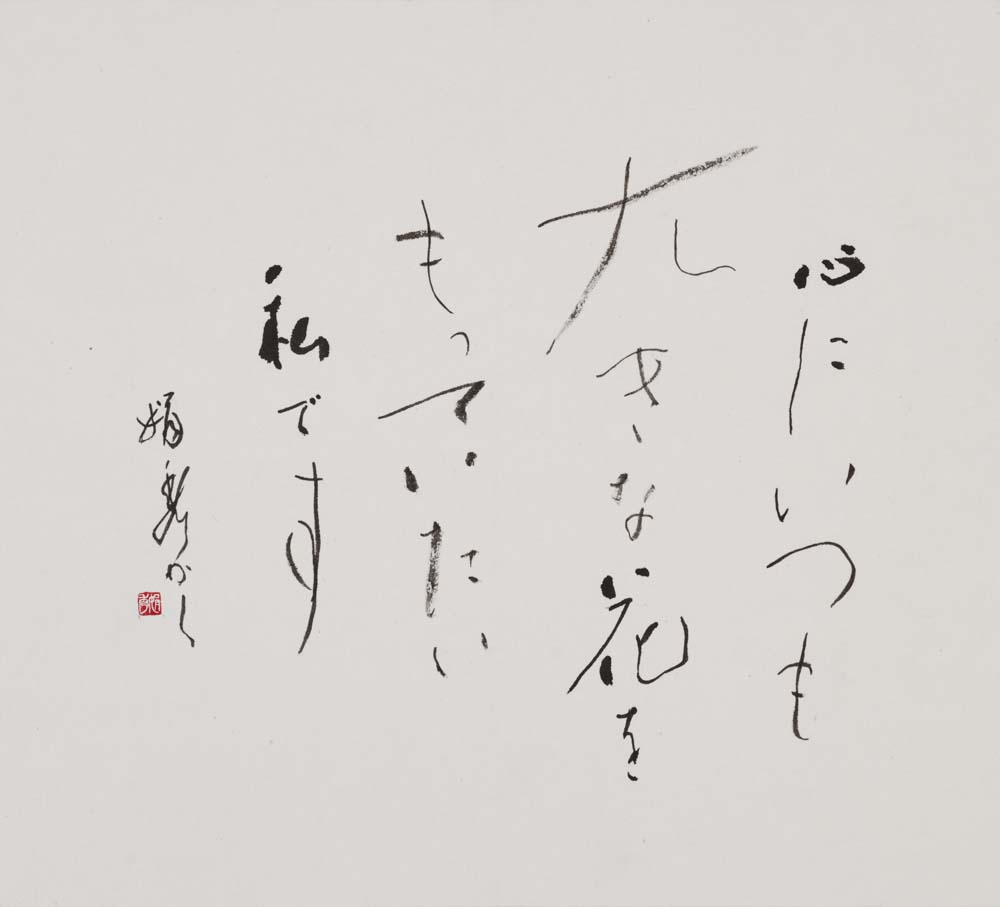 心にいつも
大きな花を
もっていたい
私です